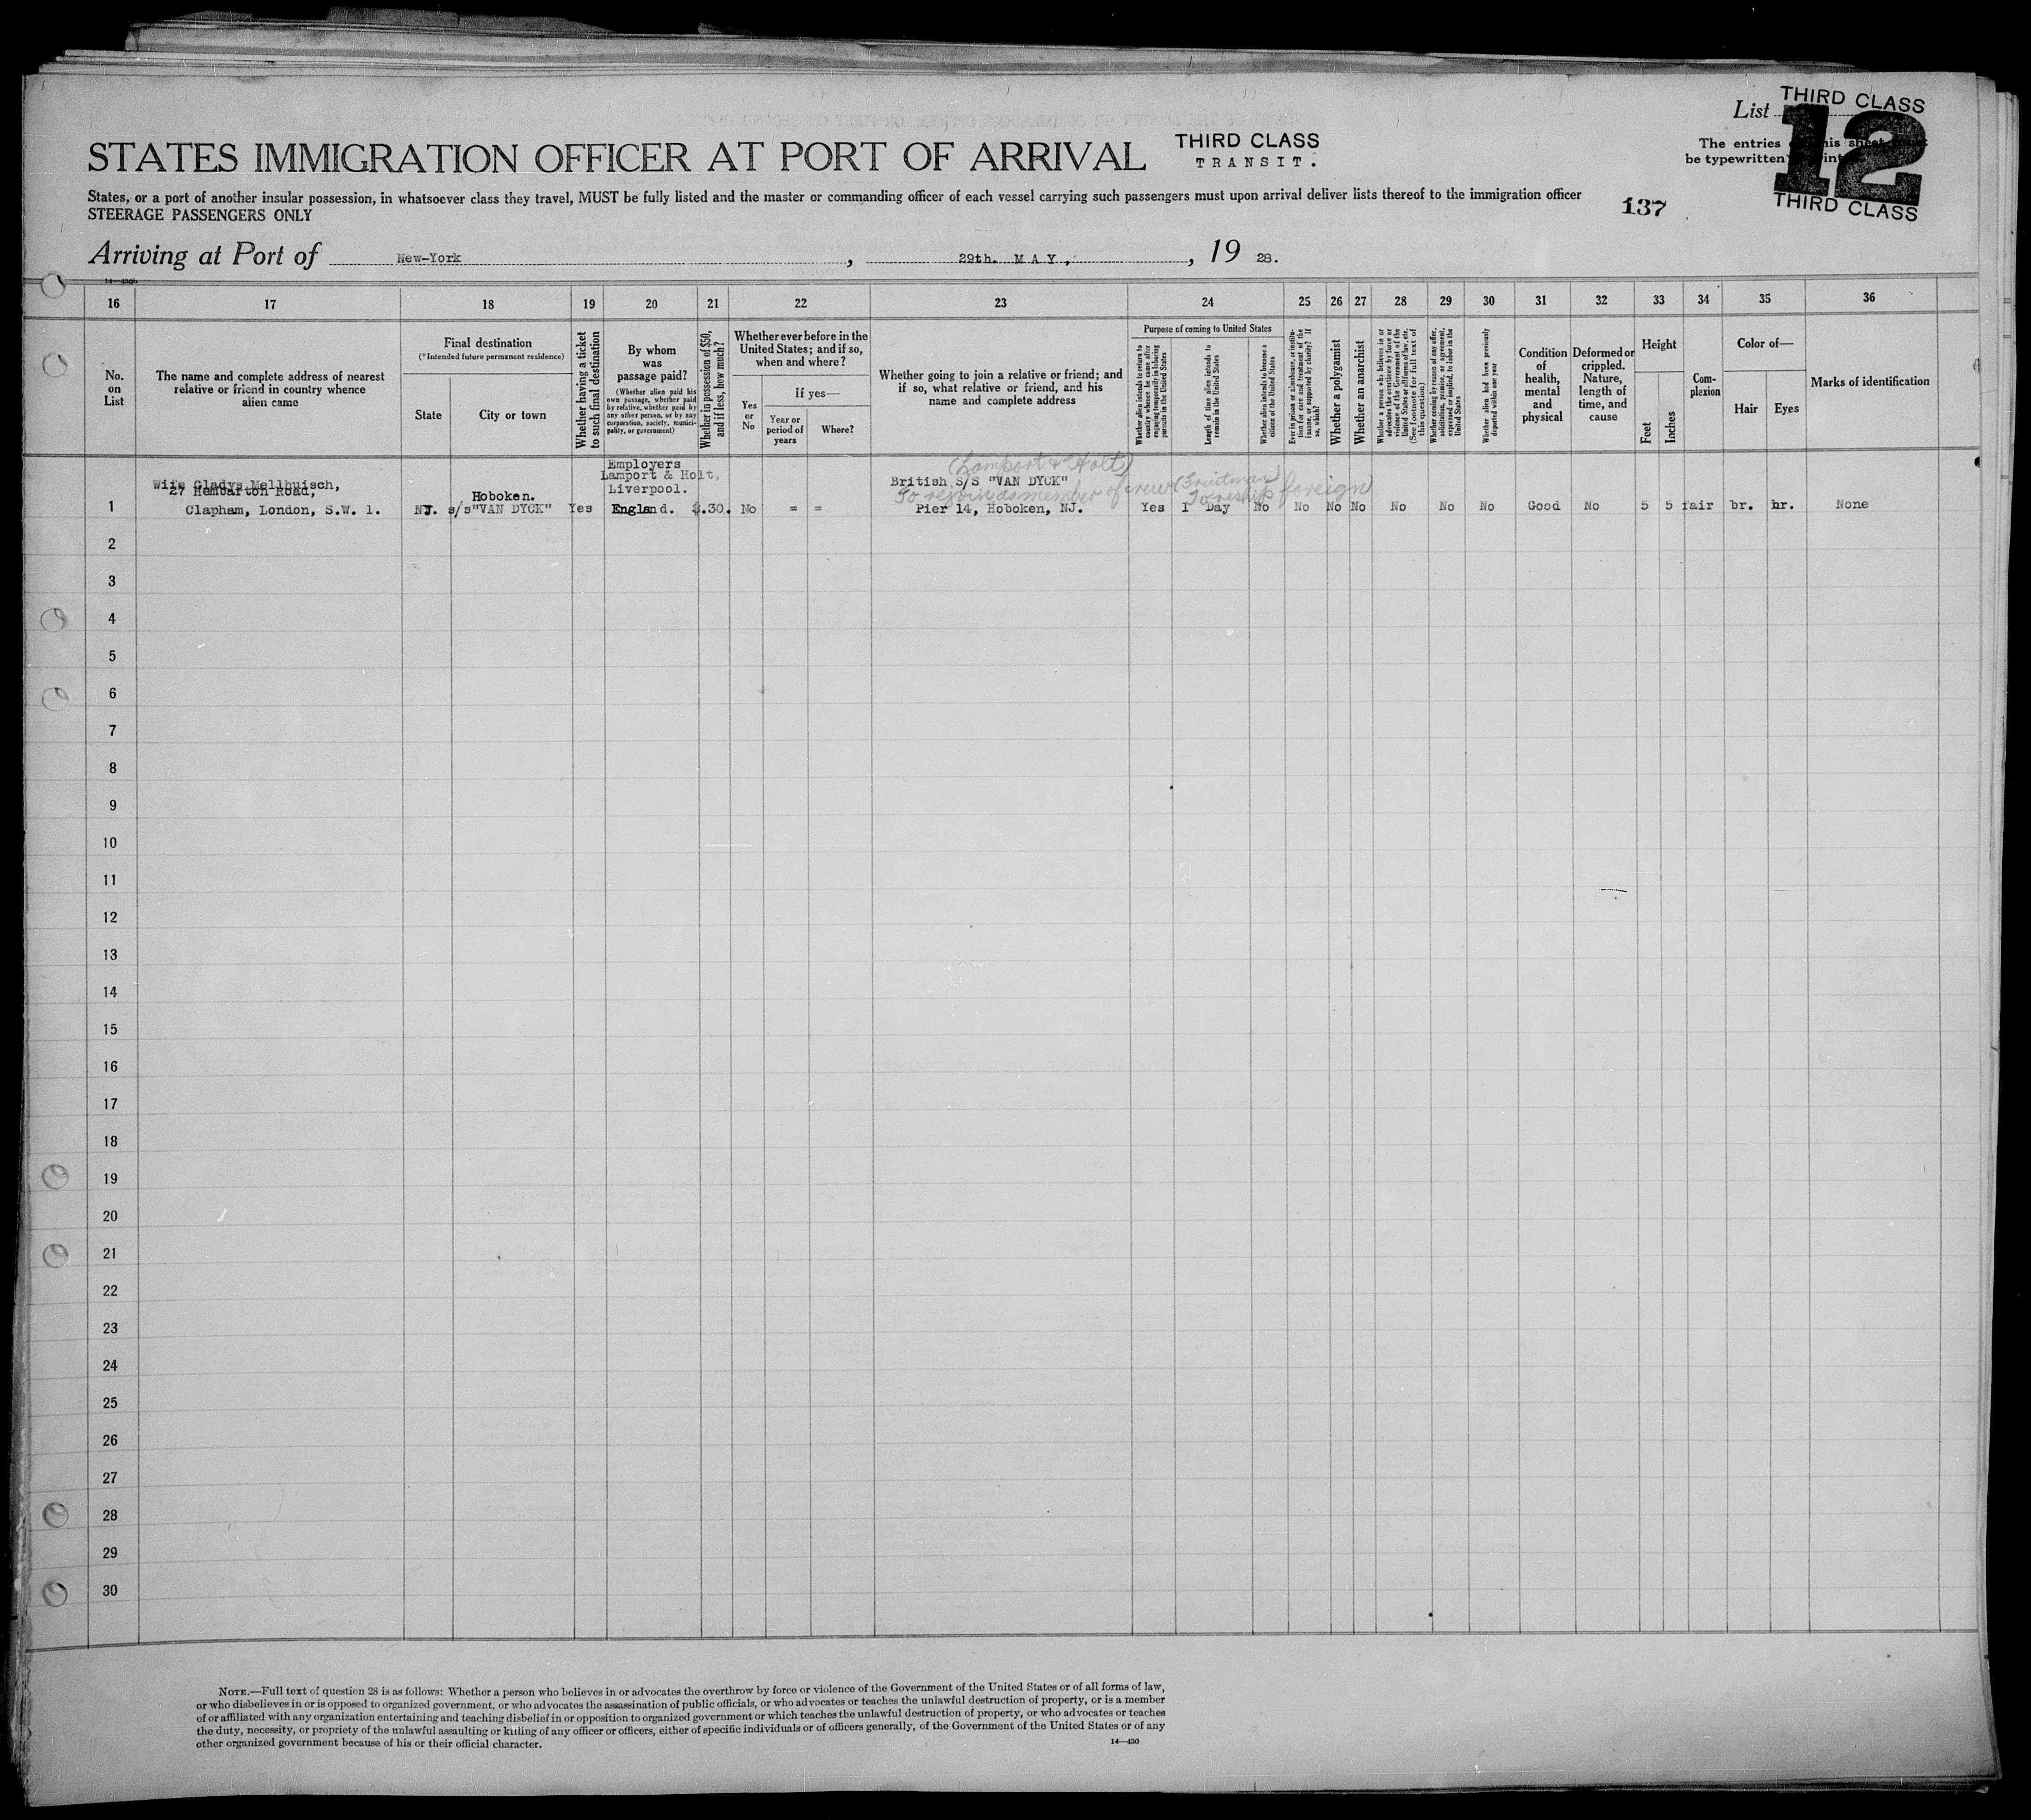 THIRD CLASS
List
12
The entries
be typewritten
THIRD CLASS
STATES IMMIGRATION OFFICER AT PORT OF ARRIVAL
THIRD CLASS
TRANSIT.
States, or a port of another insular possession, in whatsoever class they travel, MUST be fully listed and the master or commanding officer of each vessel carrying such passengers must upon arrival deliver lists thereof to the immigration officer
STEERAGE PASSENGERS ONLY
137
Arriving at Port of New-York, 29th. MAY., 19 28.
16 17 18 19 20 21 22 23 24 25 26 27 28 29 30 31 32 33 34 35 36
No. on List
The name and complete address of nearest relative or friend in country whence alien came
Final destination
(*Intended future permanent residence)
State
City or town
Whether having a ticket to such final destination
By whom was passage paid?
(Whether alien paid his own passage, whether paid by relative, whether paid by any other person, or by any corporation, society, municipality, or government)
Whether in possession of $50, and if less, how much?
Whether ever before in the United States; and if so, when and where?
Yes or No
If yes—
Year or period of years
Where?
Whether going to join a relative or friend; and if so, what relative or friend, and his name and complete address
Purpose of coming to United States
Whether alien intends to return to country whence he came after engaging temporarily in laboring pursuits in the United States
Length of time alien intends to remain in the United States
Whether alien intends to become a citizen of the United States
Ever in prison or almshouse, or institution for care and treatment of the insane, or supported by charity? If so, which?
Whether a polygamist
Whether an anarchist
Whether a person who believes in or advocates the overthrow by force or violence of the Government of the United States or all forms of law, etc. (See footnote for full text of this question)
Whether coming by reason of any offer, solicitation, promise, or agreement, expressed or implied, to labor in the United States
Whether alien had been previously deported within one year
Condition of health, mental and physical
Deformed or crippled. Nature, length of time, and cause
Height
Feet
Inches
Complexion
Color of—
Hair
Eyes
Marks of identification
Employers
(Lamport & Holt)
Wife Gladys Mellhuisch,
Lamport & Holt,
British S/S "VAN DYCK"
27 Hembarton Road,
Hoboken.
Liverpool.
To rejoin as member of crew
To reship foreign
1 Clapham, London, S.W. 1. NJ. s/s"VAN DYCK" Yes England. $.30. No = = Pier 14, Hoboken, NJ. Yes 1 Day No No No No No No No Good No 5 5 fair br. br. None
2
3
4
5
6
7
8
9
10
11
12
13
14
15
16
17
18
19
20
21
22
23
24
25
26
27
28
29
30
NOTE.—Full text of question 28 is as follows: Whether a person who believes in or advocates the overthrow by force or violence of the Government of the United States or of all forms of law,
or who disbelieves in or is opposed to organized government, or who advocates the assassination of public officials, or who advocates or teaches the unlawful destruction of property, or is a member
of or affiliated with any organization entertaining and teaching disbelief in or opposition to organized government or which teaches the unlawful destruction of property, or who advocates or teaches
the duty, necessity, or propriety of the unlawful assaulting or killing of any officer or officers, either of specific individuals or of officers generally, of the Government of the United States or of any
other organized government because of his or their official character.
14—430